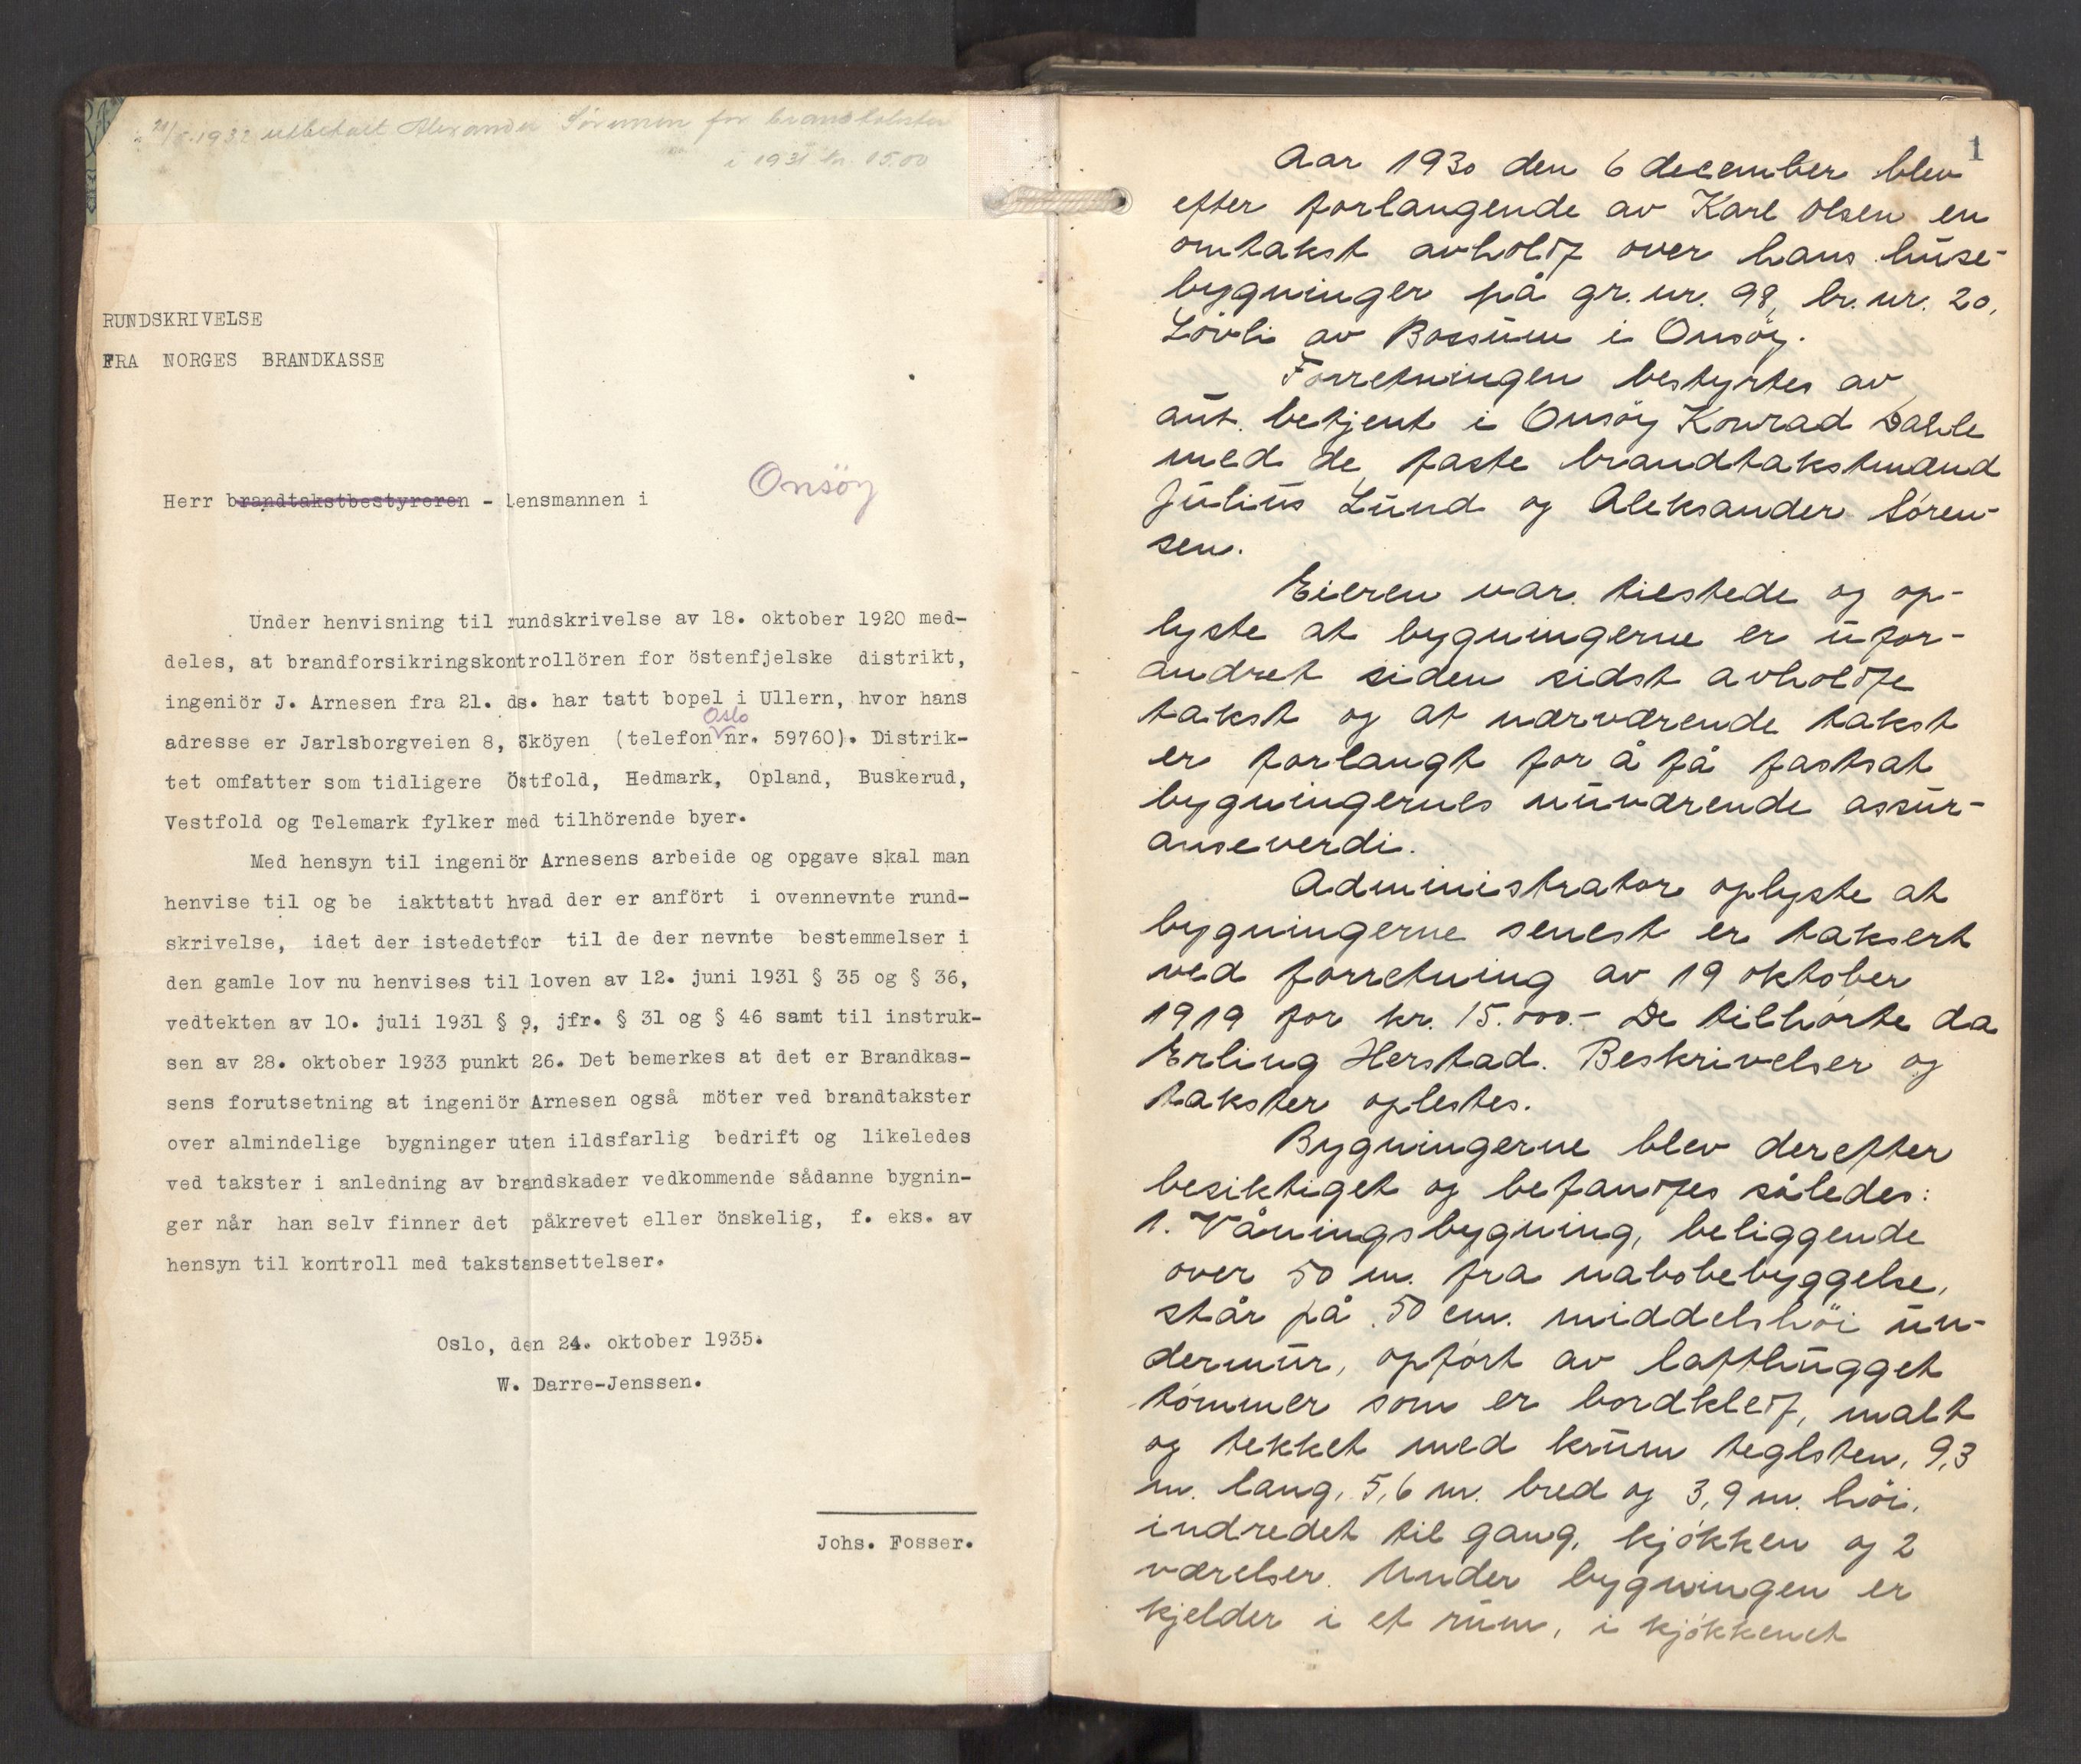 21/8.1932 utbetalt Alexander Sørensen for brandtakster
i 1931 kr. 15.00
RUNDSKRIVELSE
FRA NORGES BRANDKASSE
Herr brandtakstbestyreren - lensmannen i Onsöy
Under henvisning til rundskrivelse av 18. oktober 1920 med-
deles, at brandforsikringskontrollören for östenfjelske distrikt,
ingeniör J. Arnesen fra 21. ds. har tatt bopel i Ullern, hvor hans
adresse er Jarlsborgveien 8, Sköyen (telefon Oslo nr. 59760). Distrik-
tet omfatter som tidligere Östfold, Hedmark, Opland, Buskerud,
Vestfold og Telemark fylker med tilhörende byer.
Med hensyn til ingeniör Arnesens arbeide og opgave skal man
henvise til og be iakttatt hvad der er anfört i ovennevnte rund-
skrivelse, idet der istedetfor til de der nevnte bestemmelser i
den gamle lov nu henvises til loven av 12. juni 1931 § 35 og § 36,
vedtekten av 10. juli 1931 § 9, jfr. § 31 og § 46 samt til instruk-
sen av 28. oktober 1933 punkt 26. Det bemerkes at det er Brandkas-
sens forutsetning at ingeniör Arnesen også möter ved brandtakster
over almindelige bygninger uten ildsfarlig bedrift og likeledes
ved takster i anledning av brandskader vedkommende sådanne bygnin-
ger når han selv finner det påkrevet eller önskelig, f. eks. av
hensyn til kontroll med takstansettelser.
Oslo, den 24. oktober 1935.
W. Darre-Jenssen.
Johs. Fosser.
1
Aar 1930 den 6 december blev
efter forlangende av Karl Olsen en
omtakst avholdt over hans huse-
bygninger på gr. nr. 98, br. nr. 20,
Lövli av Bossum i Onsöy.
Forretningen bestyrtes av
aut. betjent i Onsöy Konrad Dahle
med de faste brandtakstmænd
Julius Lund og Aleksander Sören-
sen.
Eieren var tilstede og op-
lyste at bygningerne er ufor-
andret siden sidst avholdte
takst og at nærværende takst
er forlangt for å få fastsat
bygningernes nuværende assur-
anseverdi.
Administrator oplyste at
bygningerne senest er taksert
ved forretning av 19 oktober
1919 for kr. 15.000.- De tilhörte da
Erling Herstad. Beskrivelser og
takster oplestes.
Bygningerne blev derefter
besiktiget og befandtes således:
1. Våningsbygning, beliggende
over 50 m. fra nabobebyggelse,
står på 50 cm. middelshöi un-
dermur, opfört av lafthugget
tömmer som er bordkledt, malt
og tekket med krum teglsten, 9,3
m. lang, 5,6 m. bred og 3,9 m. höi,
indredet til gang, kjökken og 2
værelser. Under bygningen er
kjelder i et rum, i kjökkenet